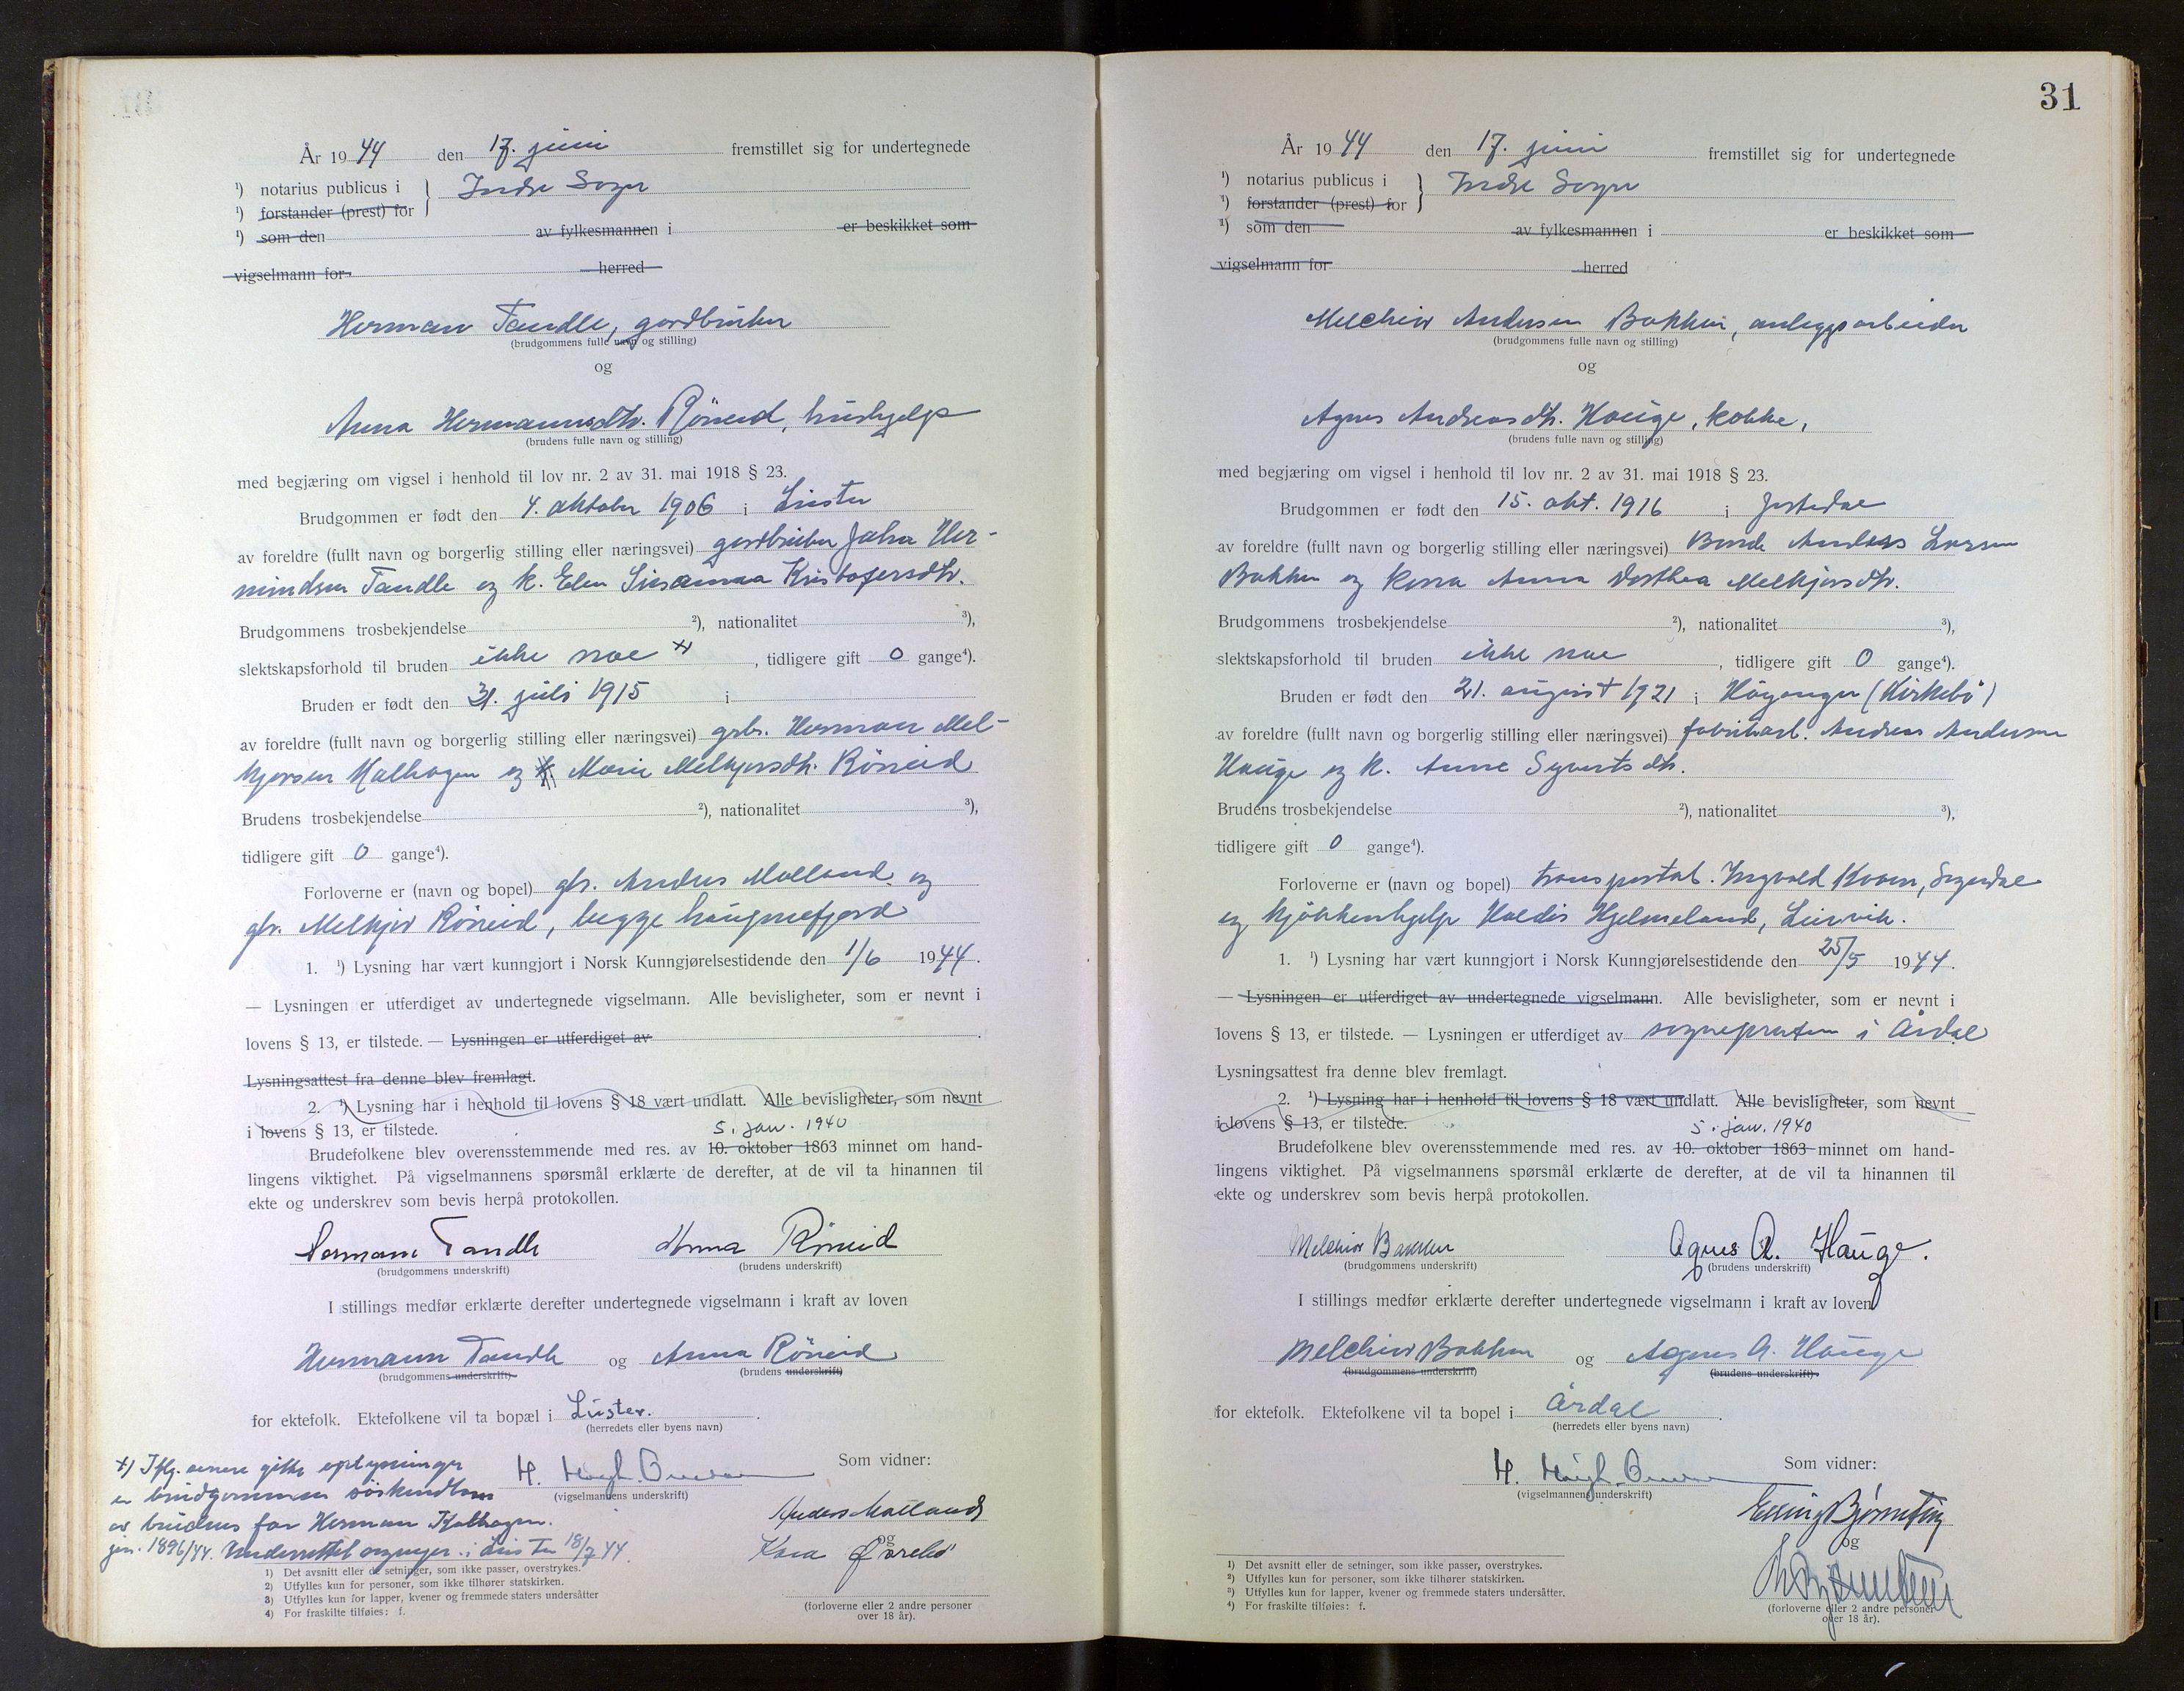 År 1944 den 17. juni fremstillet sig for undertegnede
¹) notarius publicus i } Indre Sogn
¹) forstander (prest) for
¹) som den av fylkesmannen i er beskikket som
vigselmann for herred
Herman Tandle, gardbruker
(brudgommens fulle navn og stilling)
og
Anna Hermannsdtr. Röneid, hushjelp
(brudens fulle navn og stilling)
med begjæring om vigsel i henhold til lov nr. 2 av 31. mai 1918 § 23.
Brudgommen er født den 4. oktober 1906 i Luster
av foreldre (fullt navn og borgerlig stilling eller næringsvei) gardbruker Johan Her-
mundsen Tandle og k. Elen Susanna Kristofersdtr.
Brudgommens trosbekjendelse ²), nationalitet ³),
slektskapsforhold til bruden ikke noe x) , tidligere gift 0 gange⁴).
Bruden er født den 31. juli 1915 i
av foreldre (fullt navn og borgerlig stilling eller næringsvei) grbr. Herman Mel-
kjorsen Kalhagen og Marie Melkjorsdtr. Röneid
Brudens trosbekjendelse ²), nationalitet ³),
tidligere gift 0 gange⁴).
Forloverne er (navn og bopel) gbr. Anders Molland og
gbr. Melkjor Röneid, begge haugnefjord
1. ¹) Lysning har vært kunngjort i Norsk Kunngjørelsestidende den 1/6 1944.
— Lysningen er utferdiget av undertegnede vigselmann. Alle bevisligheter, som er nevnt i
lovens § 13, er tilstede. — Lysningen er utferdiget av .
Lysningsattest fra denne blev fremlagt.
2. ¹) Lysning har i henhold til lovens § 18 vært undlatt. Alle bevisligheter, som nevnt
i lovens § 13, er tilstede.
5. jan. 1940
Brudefolkene blev overensstemmende med res. av 10. oktober 1863 minnet om hand-
lingens viktighet. På vigselmannens spørsmål erklærte de derefter, at de vil ta hinannen til
ekte og underskrev som bevis herpå protokollen.
Hermann Tandle Anna Röneid
(brudgommens underskrift) (brudens underskrift)
I stillings medfør erklærte derefter undertegnede vigselmann i kraft av loven
Hermann Tandle og Anna Röneid
(brudgommens underskrift) (brudens underskrift)
for ektefolk. Ektefolkene vil ta bopæl i Luster. .
(herredets eller byens navn)
x) Iflg. senere gitte oplysninger
er brudgommen söskendbarn
av brudens far Herman Kalhagen.
jnr. 1896/44. Underrettet i Luster 18/7 44.
H. Haugh
(vigselmannens underskrift)
Som vidner:
Anders Molland
og
Kara Øvrebö
(forloverne eller 2 andre personer
over 18 år).
1) Det avsnitt eller de setninger, som ikke passer, overstrykes.
2) Utfylles kun for personer, som ikke tilhører statskirken.
3) Utfylles kun for lapper, kvener og fremmede staters undersåtter
4) For fraskilte tilføies: f.
31
År 1944 den 17. juni fremstillet sig for undertegnede
¹) notarius publicus i } Indre Sogn
¹) forstander (prest) for
¹) som den av fylkesmannen i er beskikket som
vigselmann for herred
Melchior Andersen Bakken, anleggsarbeider
(brudgommens fulle navn og stilling)
og
Agnes Andreasdtr. Hauge, kokke,
(brudens fulle navn og stilling)
med begjæring om vigsel i henhold til lov nr. 2 av 31. mai 1918 § 23.
Brudgommen er født den 15. okt. 1916 i Jostedal
av foreldre (fullt navn og borgerlig stilling eller næringsvei) Bonde Anders Larsen
Bakken og kona Anna Dorthea Melkjorsdtr.
Brudgommens trosbekjendelse ²), nationalitet ³),
slektskapsforhold til bruden ikke noe , tidligere gift 0 gange⁴).
Bruden er født den 21. august 1921 i Höyanger (Kirkebö)
av foreldre (fullt navn og borgerlig stilling eller næringsvei) fabrikarb. Andreas Andersen
Hauge og k. Anne Sjurtsdtr.
Brudens trosbekjendelse ²), nationalitet ³),
tidligere gift 0 gange⁴).
Forloverne er (navn og bopel) transportarb. Ingvald Kvam, Sogndal
og kjökkenhjelp Haldis Hjelmeland, Leirvik.
1. ¹) Lysning har vært kunngjort i Norsk Kunngjørelsestidende den 25/5 1944.
— Lysningen er utferdiget av undertegnede vigselmann. Alle bevisligheter, som er nevnt i
lovens § 13, er tilstede. — Lysningen er utferdiget av sognepresten i Årdal
Lysningsattest fra denne blev fremlagt.
2. ¹) Lysning har i henhold til lovens § 18 vært undlatt. Alle bevisligheter, som nevnt
i lovens § 13, er tilstede.
5. jan. 1940
Brudefolkene blev overensstemmende med res. av 10. oktober 1863 minnet om hand-
lingens viktighet. På vigselmannens spørsmål erklærte de derefter, at de vil ta hinannen til
ekte og underskrev som bevis herpå protokollen.
Melchior Bakken Agnes A. Hauge.
(brudgommens underskrift) (brudens underskrift)
I stillings medfør erklærte derefter undertegnede vigselmann i kraft av loven
Melchior Bakken og Agnes A. Hauge
(brudgommens underskrift) (brudens underskrift)
for ektefolk. Ektefolkene vil ta bopel i Årdal .
(herredets eller byens navn)
H. Haugh
(vigselmannens underskrift)
Som vidner:
Erling Bjørnstig
og
(forloverne eller 2 andre personer
over 18 år).
¹) Det avsnitt eller de setninger, som ikke passer, overstrykes.
²) Utfylles kun for personer, som ikke tilhører statskirken.
³) Utfylles kun for lapper, kvener og fremmede staters undersåtter.
⁴) For fraskilte tilføies: f.